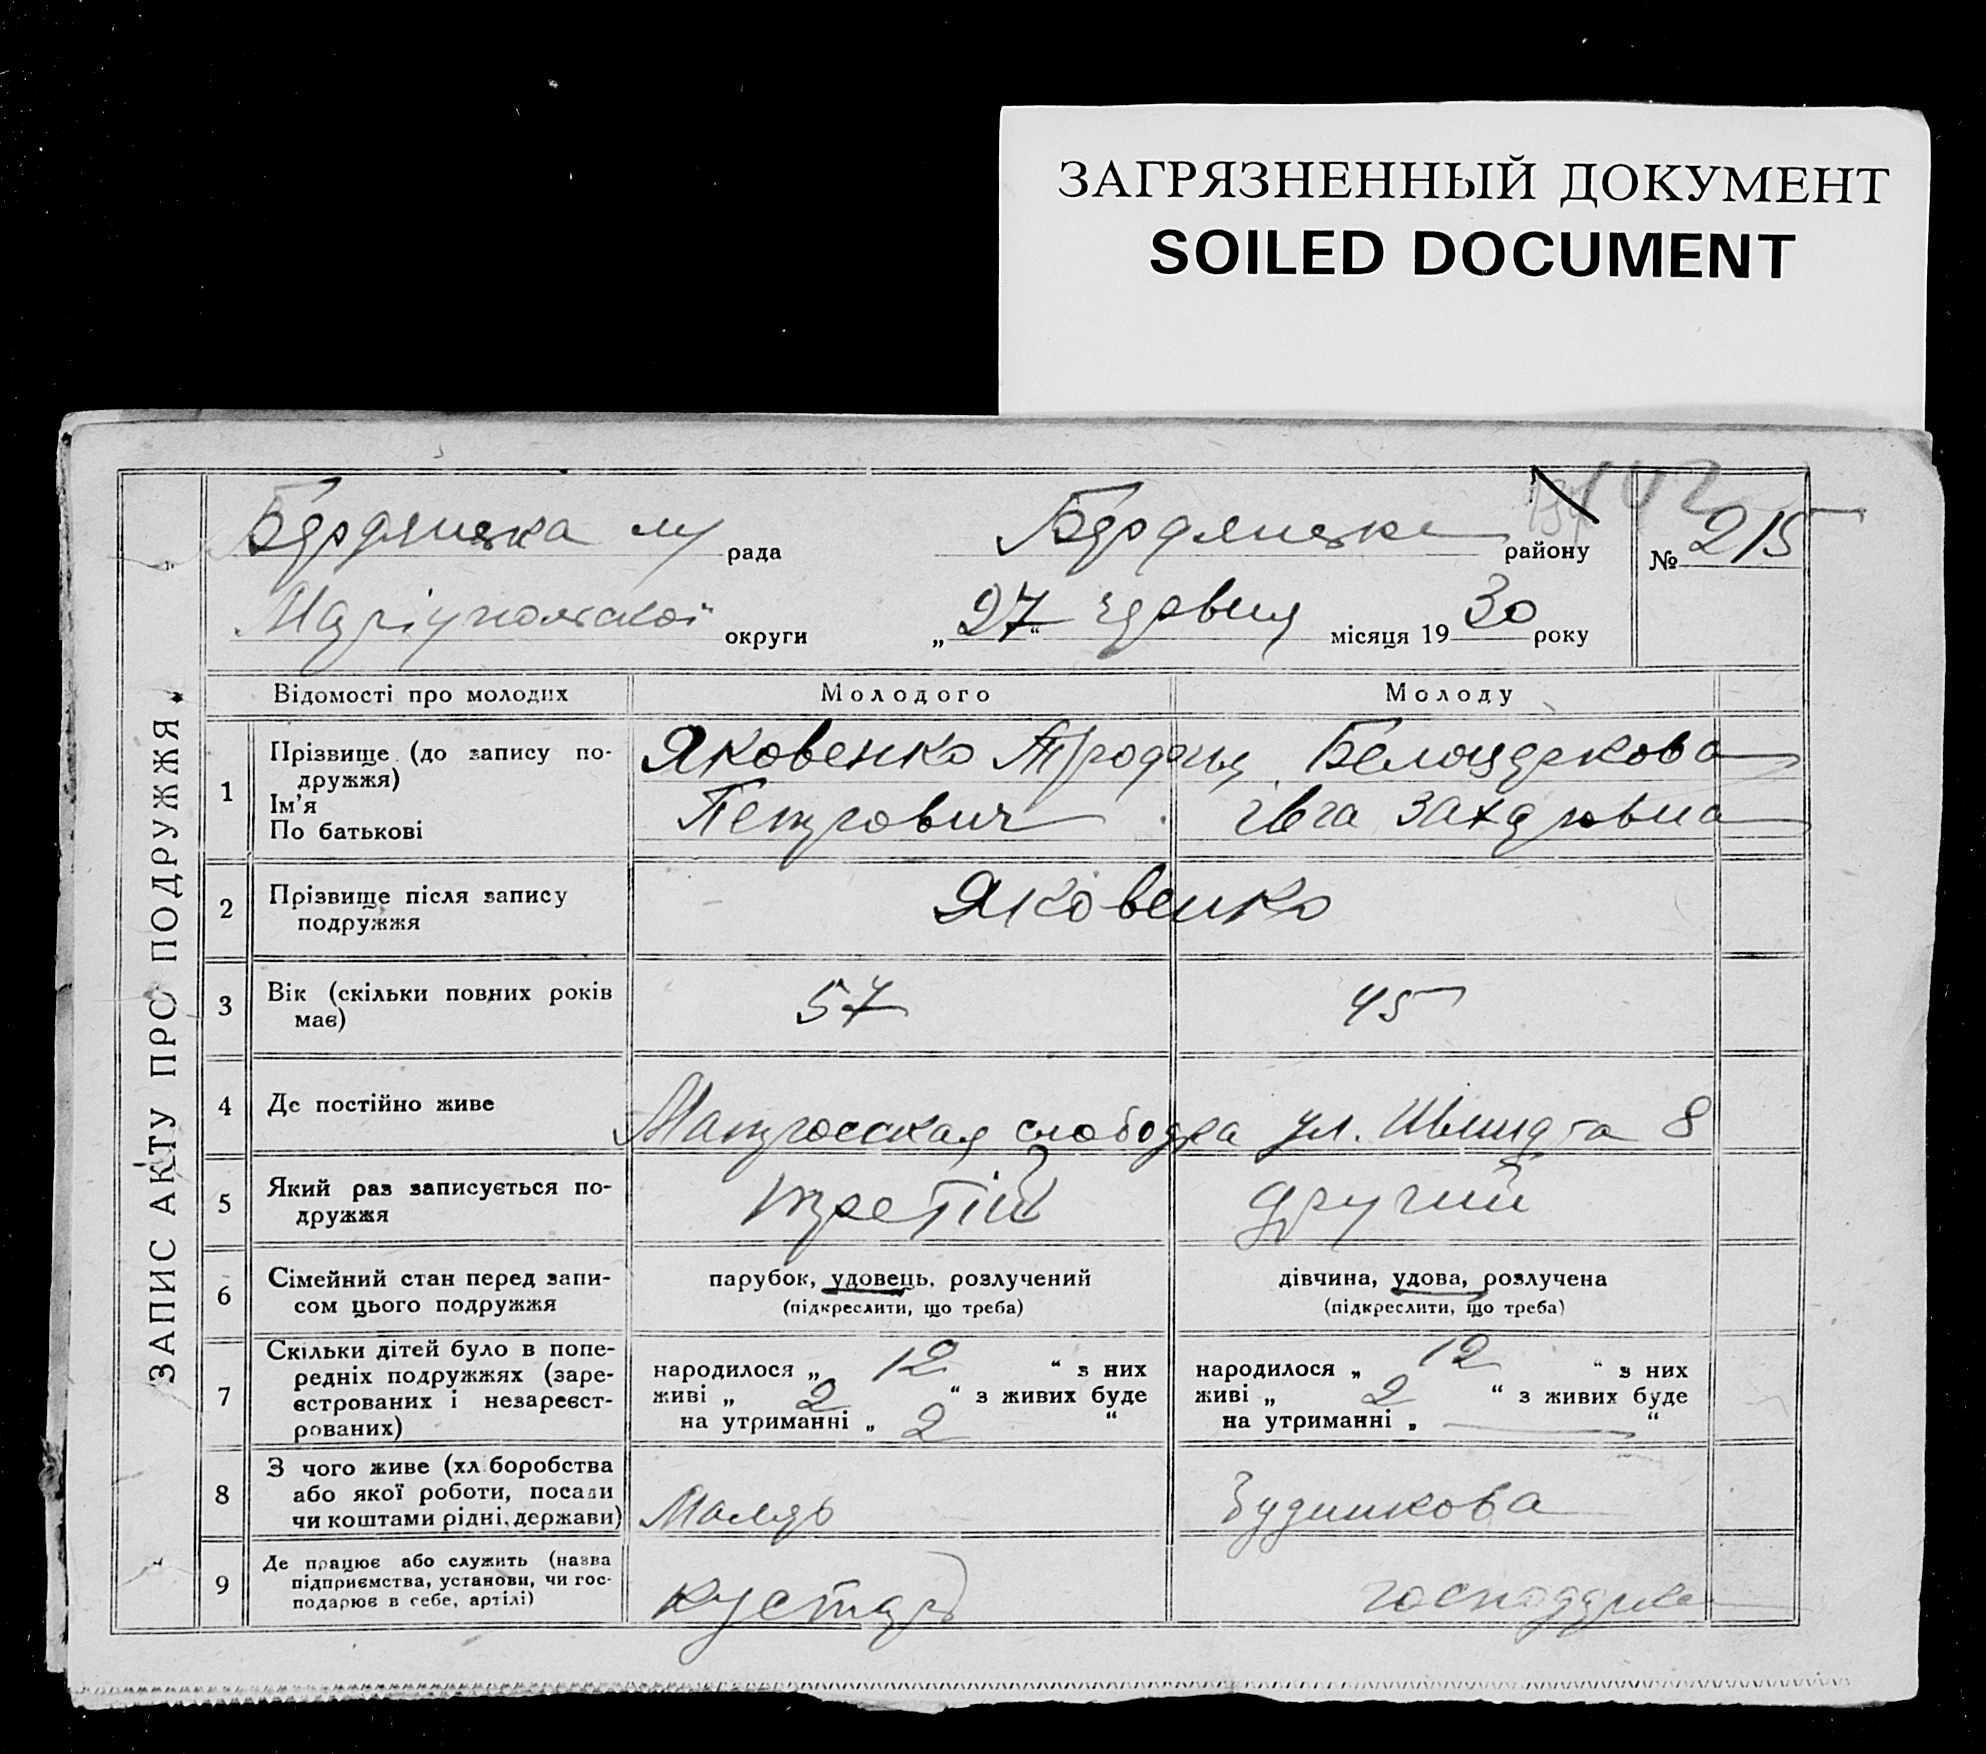 ЗАГРЯЗНЕННЫЙ ДОКУМЕНТ
SOILED DOCUMENT
ЗАПИС АКТУ ПРО ПОДРУЖЖЯ
102
Бердянська м рада Бердянське району № 215
Маріупольської округи „27“ червня місяця 1930 року
Відомості про молодих Молодого Молоду
1 Прізвище (до запису по-
дружжя)
Ім'я
По батькові
Яковенко Трофим
Петрович
Белоцеркова
Івга Захаровна
2 Прізвище після запису
подружжя
Яковенко
3 Вік (скільки повних років
має)
57 45
4 Де постійно живе
Матросская слободка ул. Шмидта 8
5 Який раз записується по-
дружжя
третій другий
6 Сімейний стан перед запи-
сом цього подружжя
парубок, удовець, розлучений
(підкреслити, що треба)
дівчина, удова, розлучена
(підкреслити, що треба)
7 Скільки дітей було в попе-
редніх подружжях (заре-
єстрованих і незареєст-
рованих)
народилося „ 12 “ з них
живі „ 2 “ з живих буде
на утриманні „ 2 “
народилося „ 12 “ з них
живі „ 2 “ з живих буде
на утриманні „ — “
8 З чого живе (хліборобства
або якої роботи, посади
чи коштами рідні, держави)
Маляр
9 Де працює або служить (назва
підприємства, установи, чи гос-
подарює в себе, артілі)
кустарь